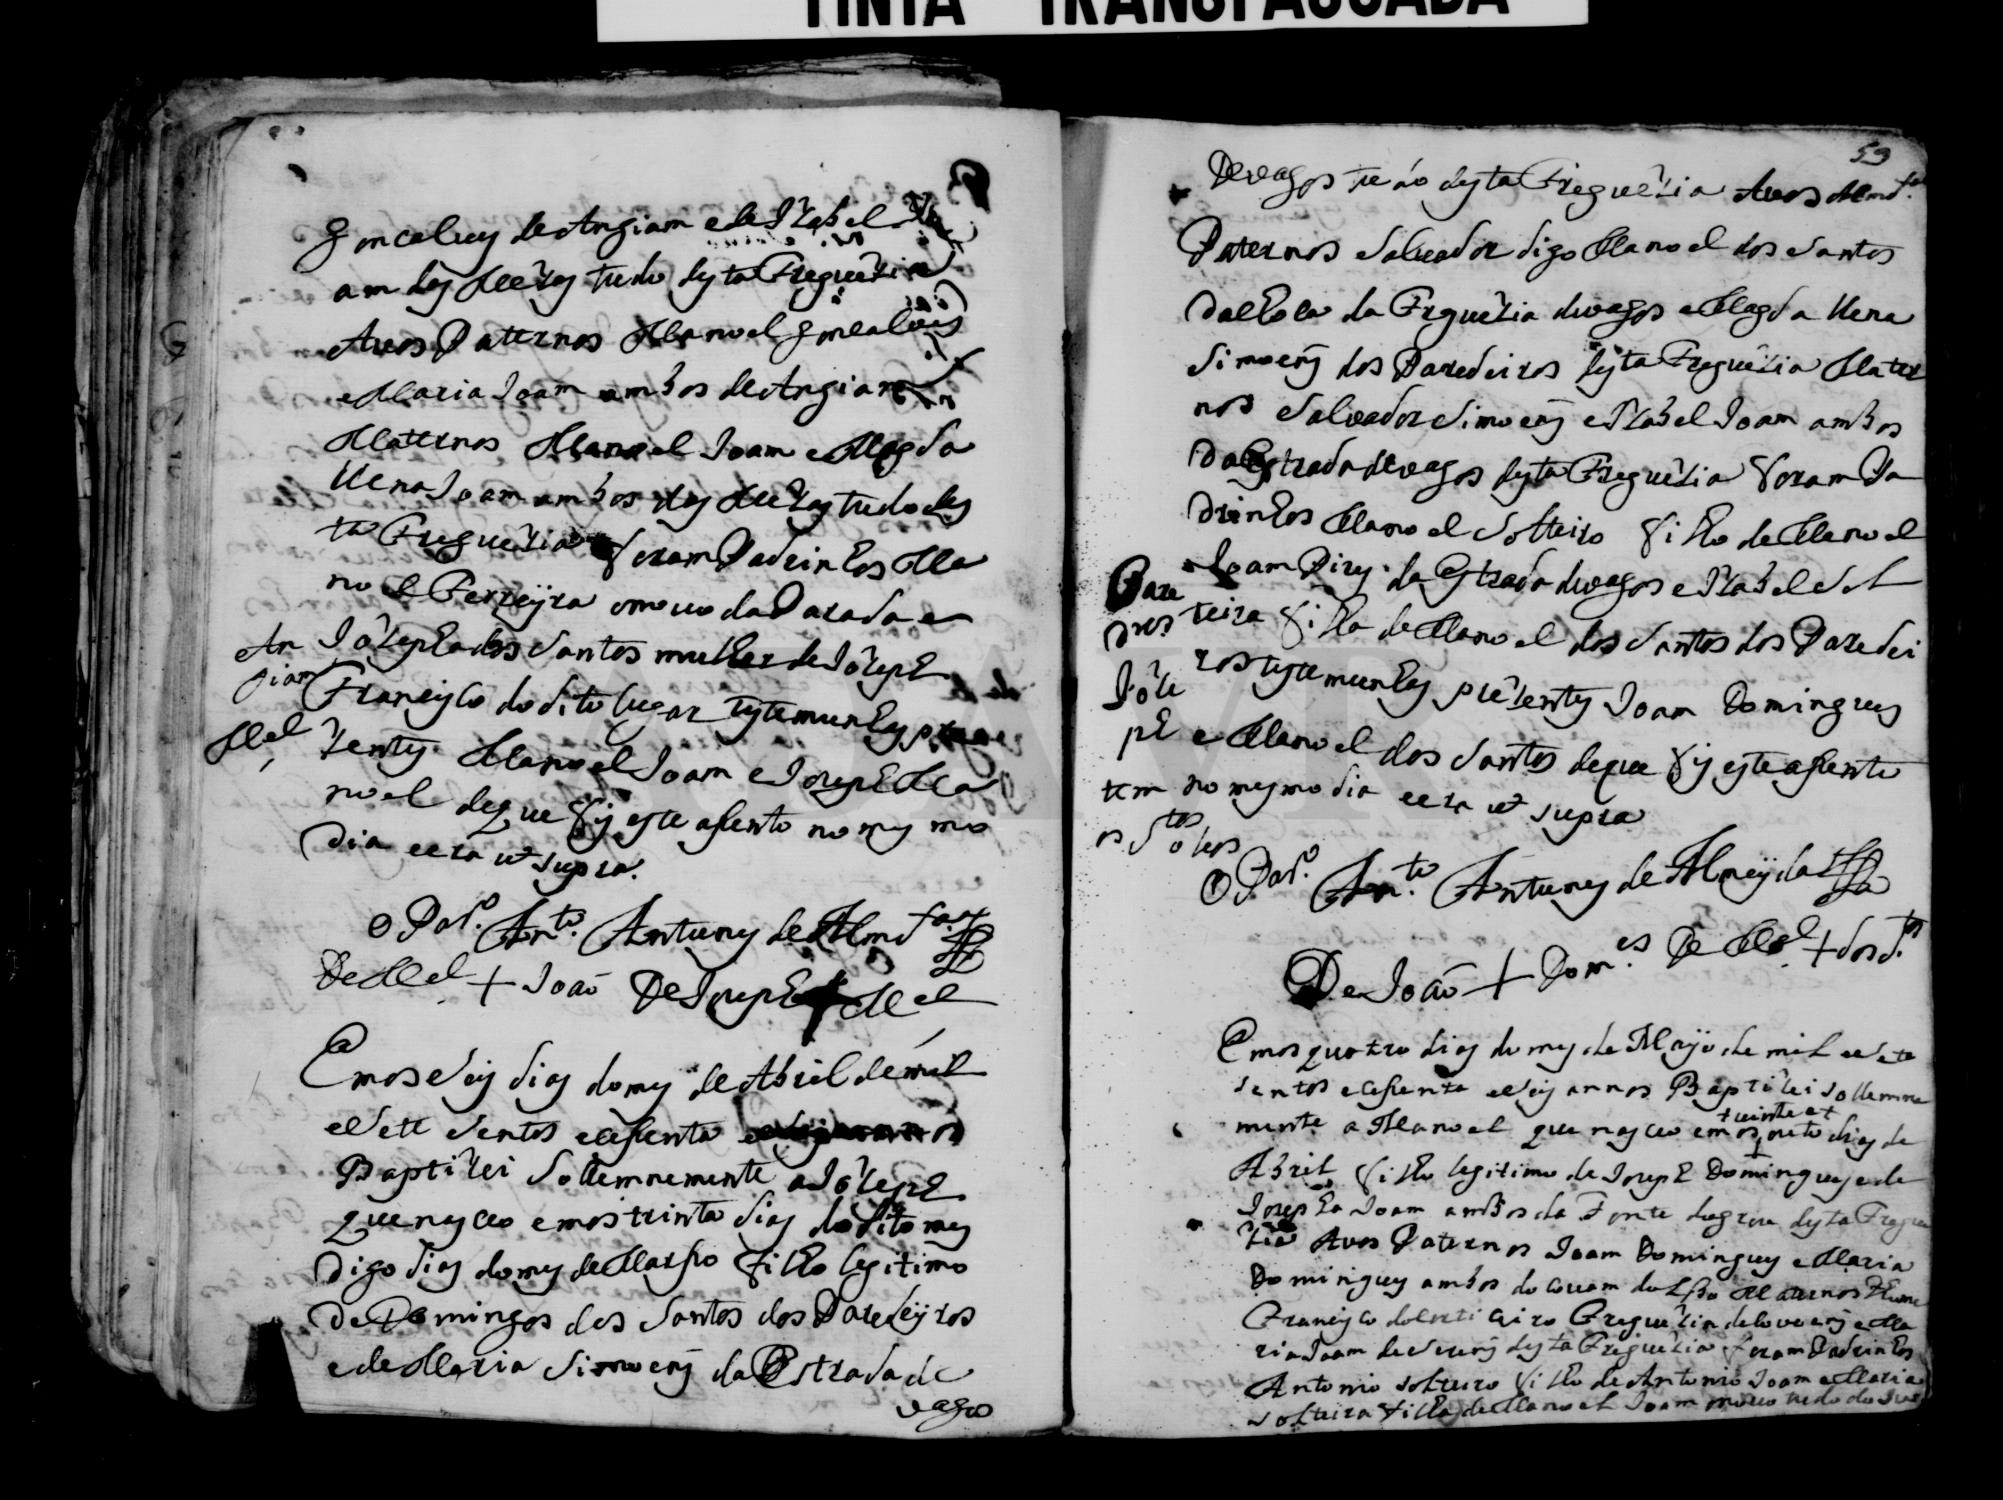 TINTA TRANSPASSADA
Goncalues de Angiam e de Izabel
am des Mezas tudo desta Freguezia
Auos Paternos Manoel Goncalues
e Maria Joam ambos de Angiam
Maternos Manoel Joam e Magda
llena Joam ambos das Mezas tudo des
ta Freguezia foram Padrinhos Ma
noel Ferreyra omouo da Parada e
An
giam
Mel
Jozepha dos Santos mulher de Jozeph
Francisco do dito lugar testemunhas pre
zentes Manoel Joam e Joseph Ma
noel de que fis este asento no mesmo
dia eera ut supra.
o Par.º Ant.º Antunes de Almd.ª
De Mel + Joaõ De Joseph + Mel
Emos seis dias do mes de Abril de mil
e sete sentos e cesenta
Baptizei sollemnemente a Jozeph
que nasceo emos trinta dias do dito mes
digo dias do mes de Marso filho legitimo
de Domingos dos Santos dos Paredeyros
e de Maria Simoens da Estrada de
vagos
59
De vagos tudo desta Freguezia Auos
Paternos Saluador digo Manoel dos Santos
da Freguezia de vagos e Magda llena
Simoens dos Paredeiros desta Freguezia Mater
nos Saluador Simoens e Izabel Joam ambos
da Estrada de vagos desta Freguezia foram Pa
drinhos Manoel Solteiro filho de Manoel
Joam Pires da Estrada de vagos e Izabel Sol
Pare
dros
Joze
ph
teira filha de Manoel dos Santos dos Paredei
ros testemunhas prezentes Joam Domingues
e Manoel dos Santos de que fis este asento
tem
no mesmo dia eera ut supra
o Par.º Ant.º Antunes de Almeyda
De Joaõ + Dom.es De Mel + dos S.tos
Emos quatro dias do mes de Mayo de mil e sete
sentos e cesenta e seis annos Baptizei sollemne
mente a Manoel que nasceo emos vinte e oito dias de
Abril filho legitimo de Joseph Domingues e de
Josepha Joam ambos da Fonte de grou desta Fregue
zia Auos Paternos Joam Domingues e Maria
Domingues ambos do couam do Lobo Maternos Thome
Francisco Freguezia de e Ma
ria Joam de desta Freguezia foram Padrinhos
Antonio solteiro filho de Antonio Joam e Maria
solteira filha de Manoel Joam mouo tudo do